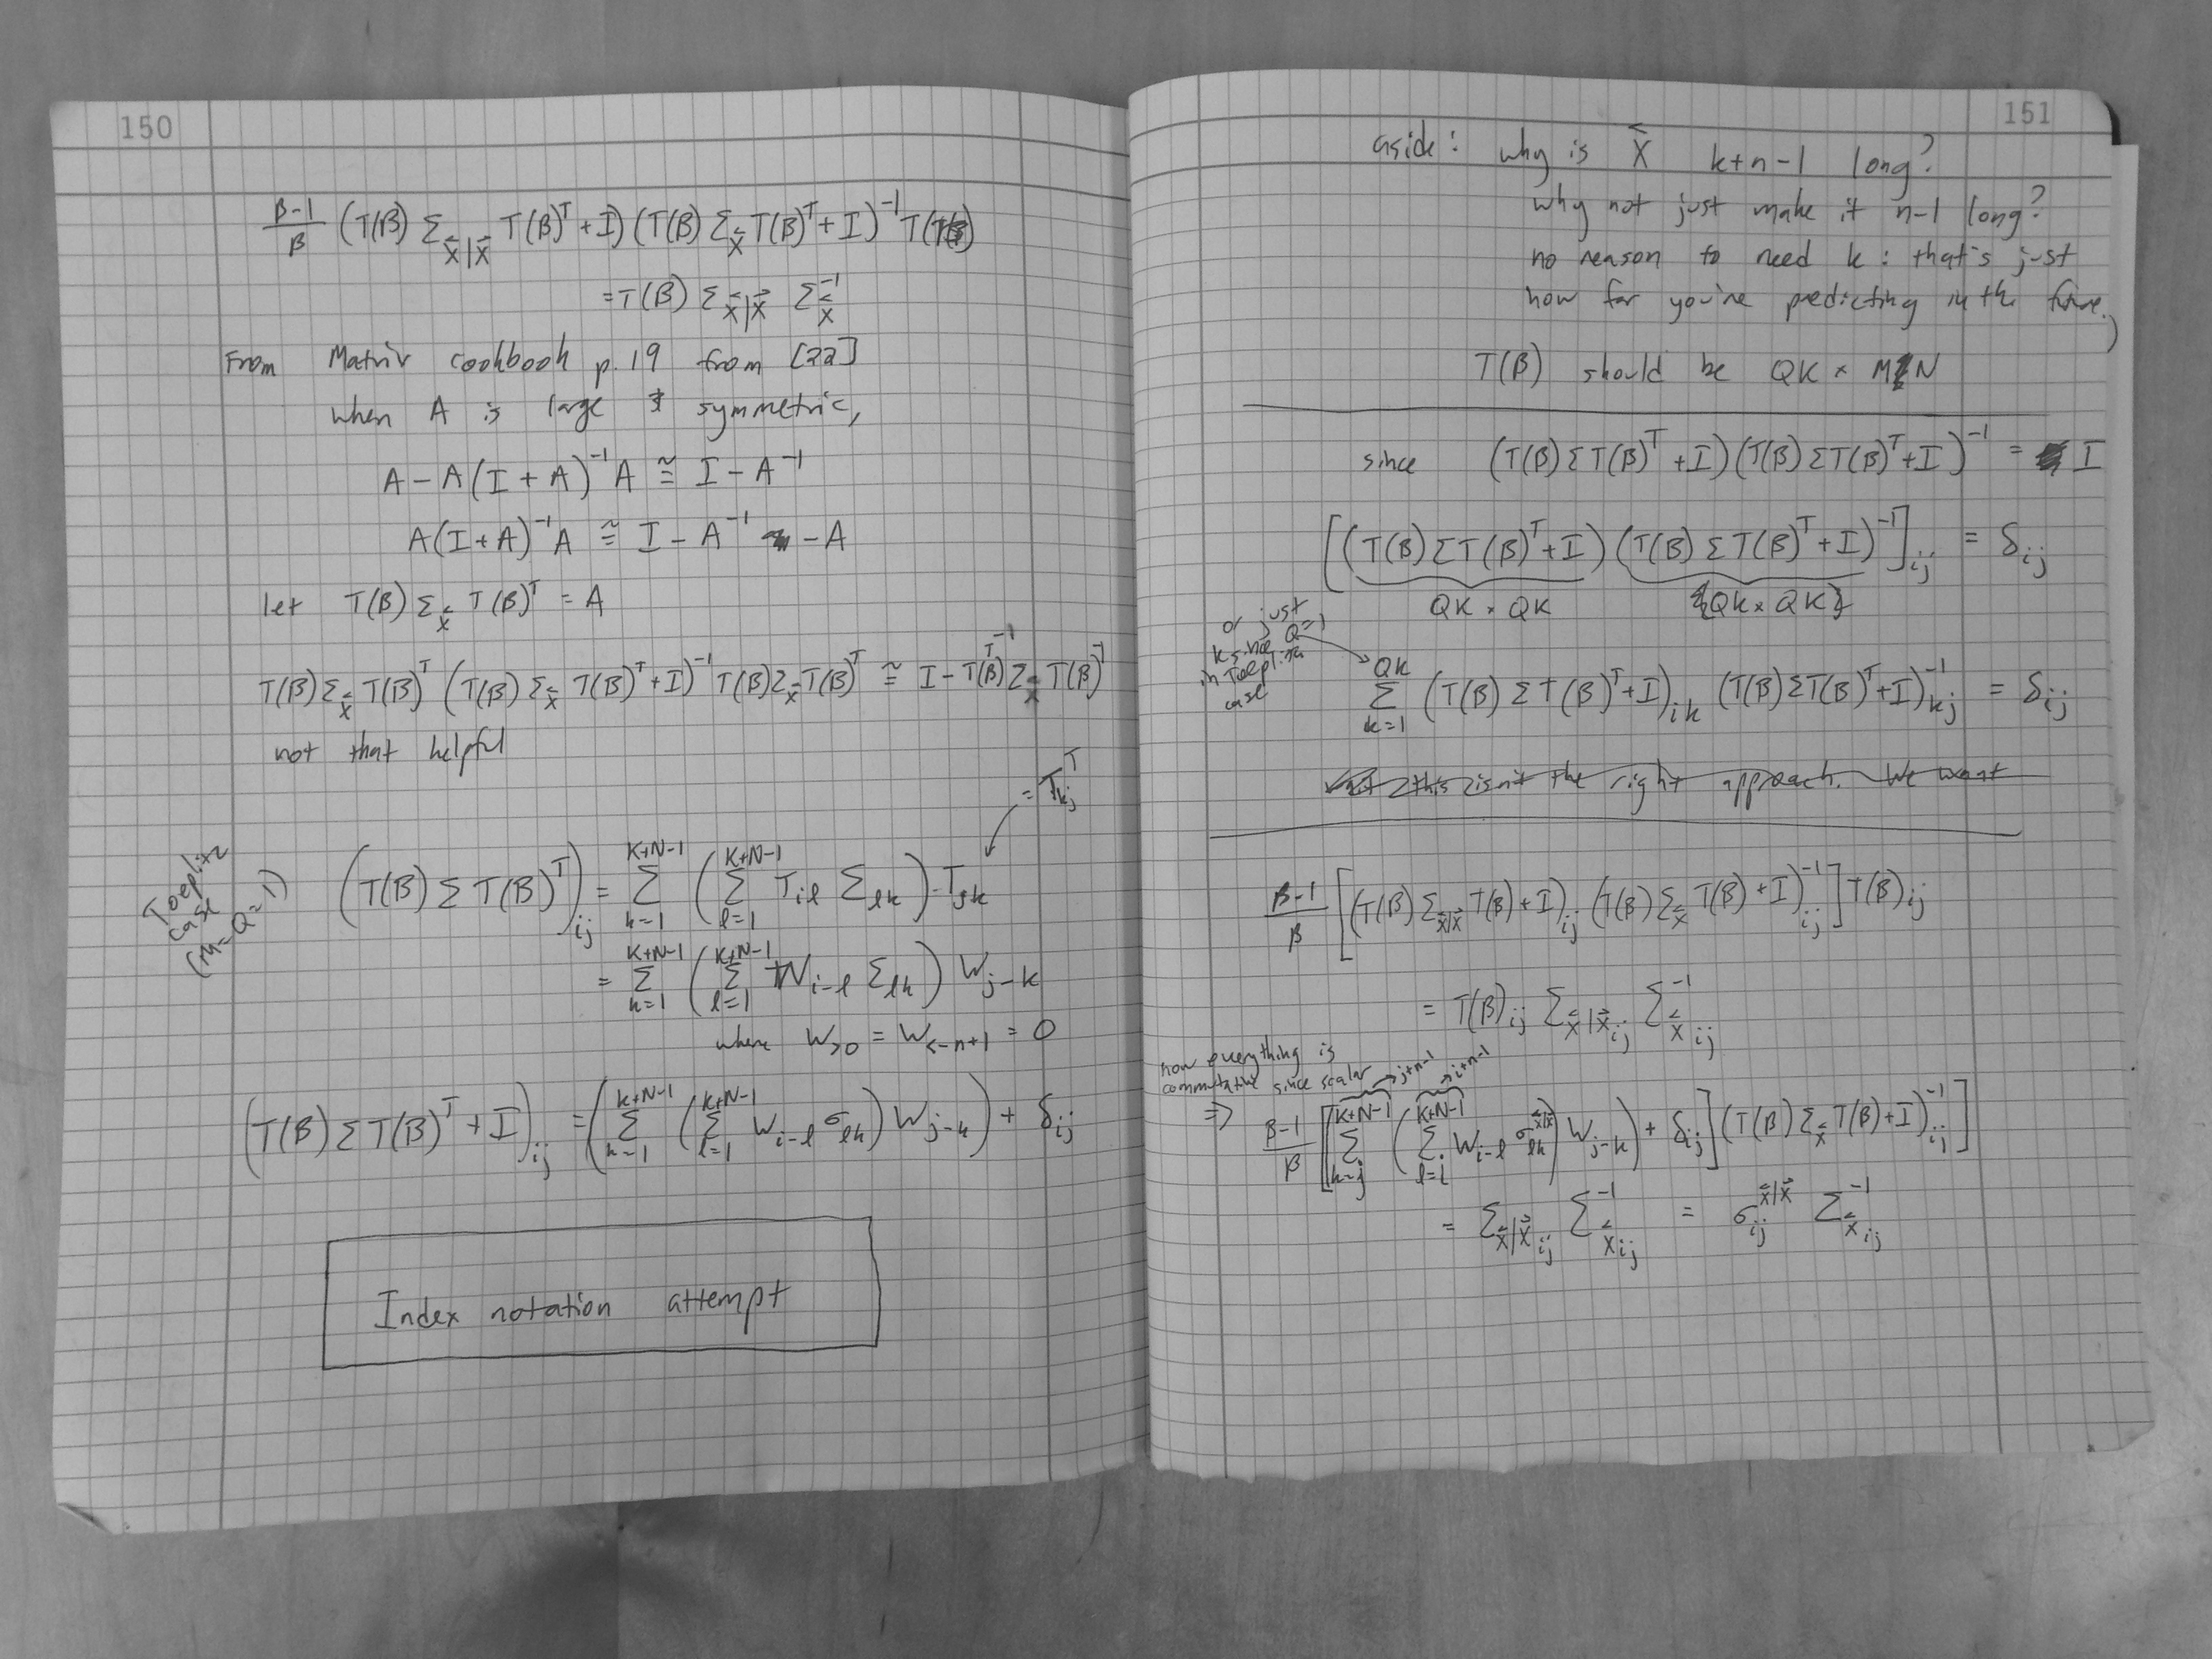 150
β-1/β (T(β) Σ_{X⃖|X⃗} T(β)^T + I) (T(β) Σ_{X⃖} T(β)^T + I)^{-1} T(β)
= T(β) Σ_{X⃖|X⃗} Σ_{X⃖}^{-1}
From Matrix cookbook p. 19 from [22]
when A is large & symmetric,
A - A(I + A)^{-1} A ≅ I - A^{-1}
A(I+A)^{-1} A ≅ I - A^{-1} - A
let T(β) Σ_{X⃖} T(β)^T = A
T(β) Σ_{X⃖} T(β)^T (T(β) Σ_{X⃖} T(β)^T + I)^{-1} T(β) Σ_{X⃖} T(β)^T ≅ I - T(β)^{T^{-1}} Σ_{X⃖} T(β)^{-1}
not that helpful
= T_{kj}^T
Toeplitz
case
(M=Q=1)
(T(β) Σ T(β)^T)_{ij} = Σ_{k=1}^{K+N-1} (Σ_{l=1}^{K+N-1} T_{il} Σ_{lk}) · T_{jk}
= Σ_{k=1}^{K+N-1} (Σ_{l=1}^{K+N-1} W_{i-l} Σ_{lk}) W_{j-k}
where W_{>0} = W_{<-n+1} = 0
(T(β) Σ T(β)^T + I)_{ij} = (Σ_{k=1}^{K+N-1} (Σ_{l=1}^{K+N-1} W_{i-l} σ_{lk}) W_{j-k}) + δ_{ij}
Index notation attempt
151
aside: why is X⃖ k+n-1 long?
why not just make it n-1 long?
no reason to need k: that's just
how far you're predicting in the future.)
T(β) should be QK × MN
since (T(β) Σ T(β)^T + I) (T(β) Σ T(β)^T + I)^{-1} = I
[(T(β) Σ T(β)^T + I) (T(β) Σ T(β)^T + I)^{-1}]_{ij} = δ_{ij}
QK × QK {QK × QK}
or just
k since Q=1
in Toeplitz
case
Σ_{k=1}^{QK} (T(β) Σ T(β)^T + I)_{ik} (T(β) Σ T(β)^T + I)^{-1}_{kj} = δ_{ij}
this isn't the right approach. We want
β-1/β [(T(β) Σ_{X⃖|X⃗} T(β) + I)_{ij} (T(β) Σ_{X⃖} T(β) + I)^{-1}_{ij}] T(β)_{ij}
= T(β)_{ij} Σ_{X⃖|X⃗ ij} Σ_{X⃖ ij}^{-1}
now everything is
commutative since scalar → j+n-1 → i+n-1
⇒ β-1/β [Σ_{k=j}^{K+N-1} (Σ_{l=i}^{K+N-1} W_{i-l} σ_{lk}^{X⃖|X⃗}) W_{j-k}) + δ_{ij}] (T(β) Σ_{X⃖} T(β) + I)^{-1}_{ij}]
= Σ_{X⃖|X⃗ ij} Σ_{X⃖ ij}^{-1} = σ_{ij}^{X⃖|X⃗} Σ_{X⃖ ij}^{-1}